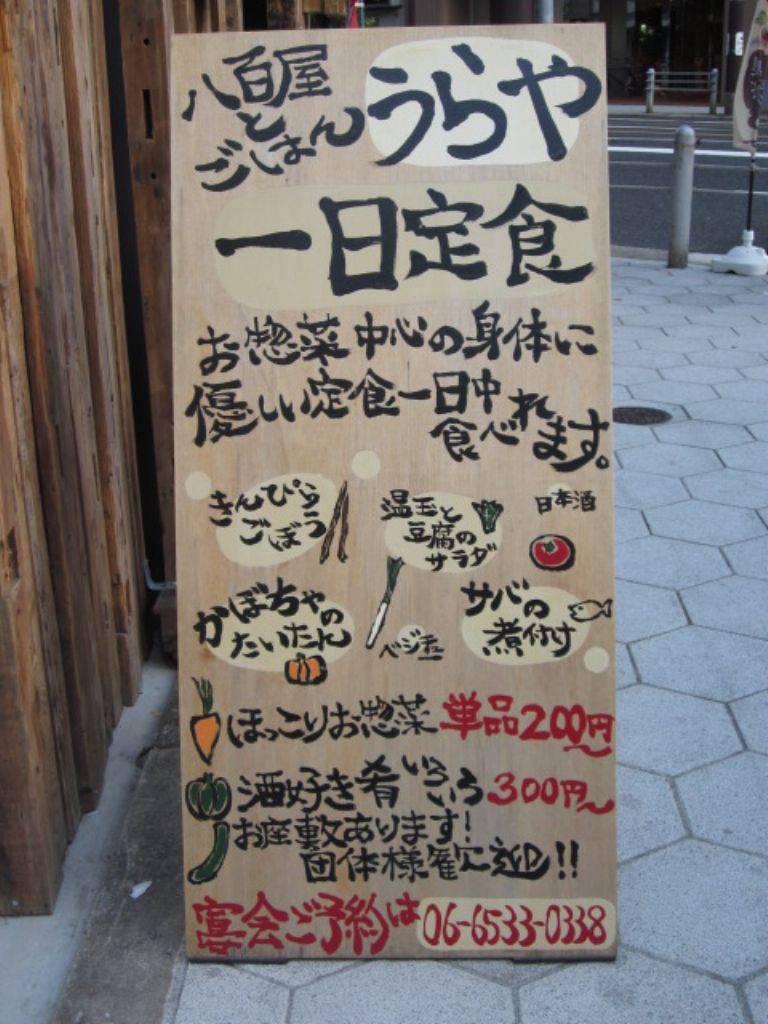 八百屋
と
ごはん
うらや
一日定食
お惣菜中心の身体に
優しい定食一日中
食べれます。
きんぴら
ごぼう
温玉と
豆腐の
サラダ
日本酒
かぼちゃの
たいたん
ベジ
サバの
煮付け
ほっこりお惣菜 単品200円〜
酒好き肴いろいろ300円〜
お座敷あります!
団体様歓迎!!
宴会ご予約は 06-6533-0338